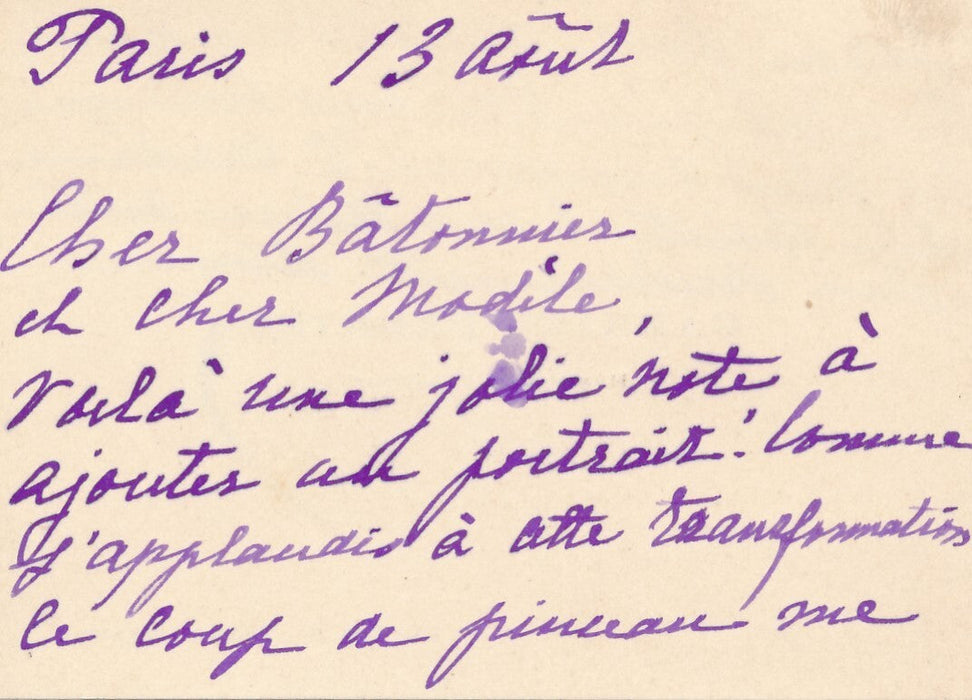 Paris 13 Août
Cher Bâtonnier
et cher Modèle,
Voilà une jolie note à
ajouter au portrait! Comme
j'applaudis à cette transformation
le coup de pinceau me